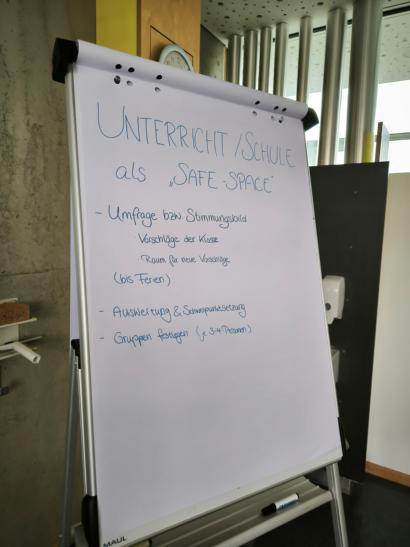 UNTERRICHT / SCHULE
als „SAFE-SPACE"
- Umfrage bzw. Stimmungsbild
Vorschläge der Klasse
Raum für neue Vorschläge
(bis Ferien)
- Auswertung & Schwerpunktsetzung
- Gruppen festlegen (je 3-4 Personen)
MAUL